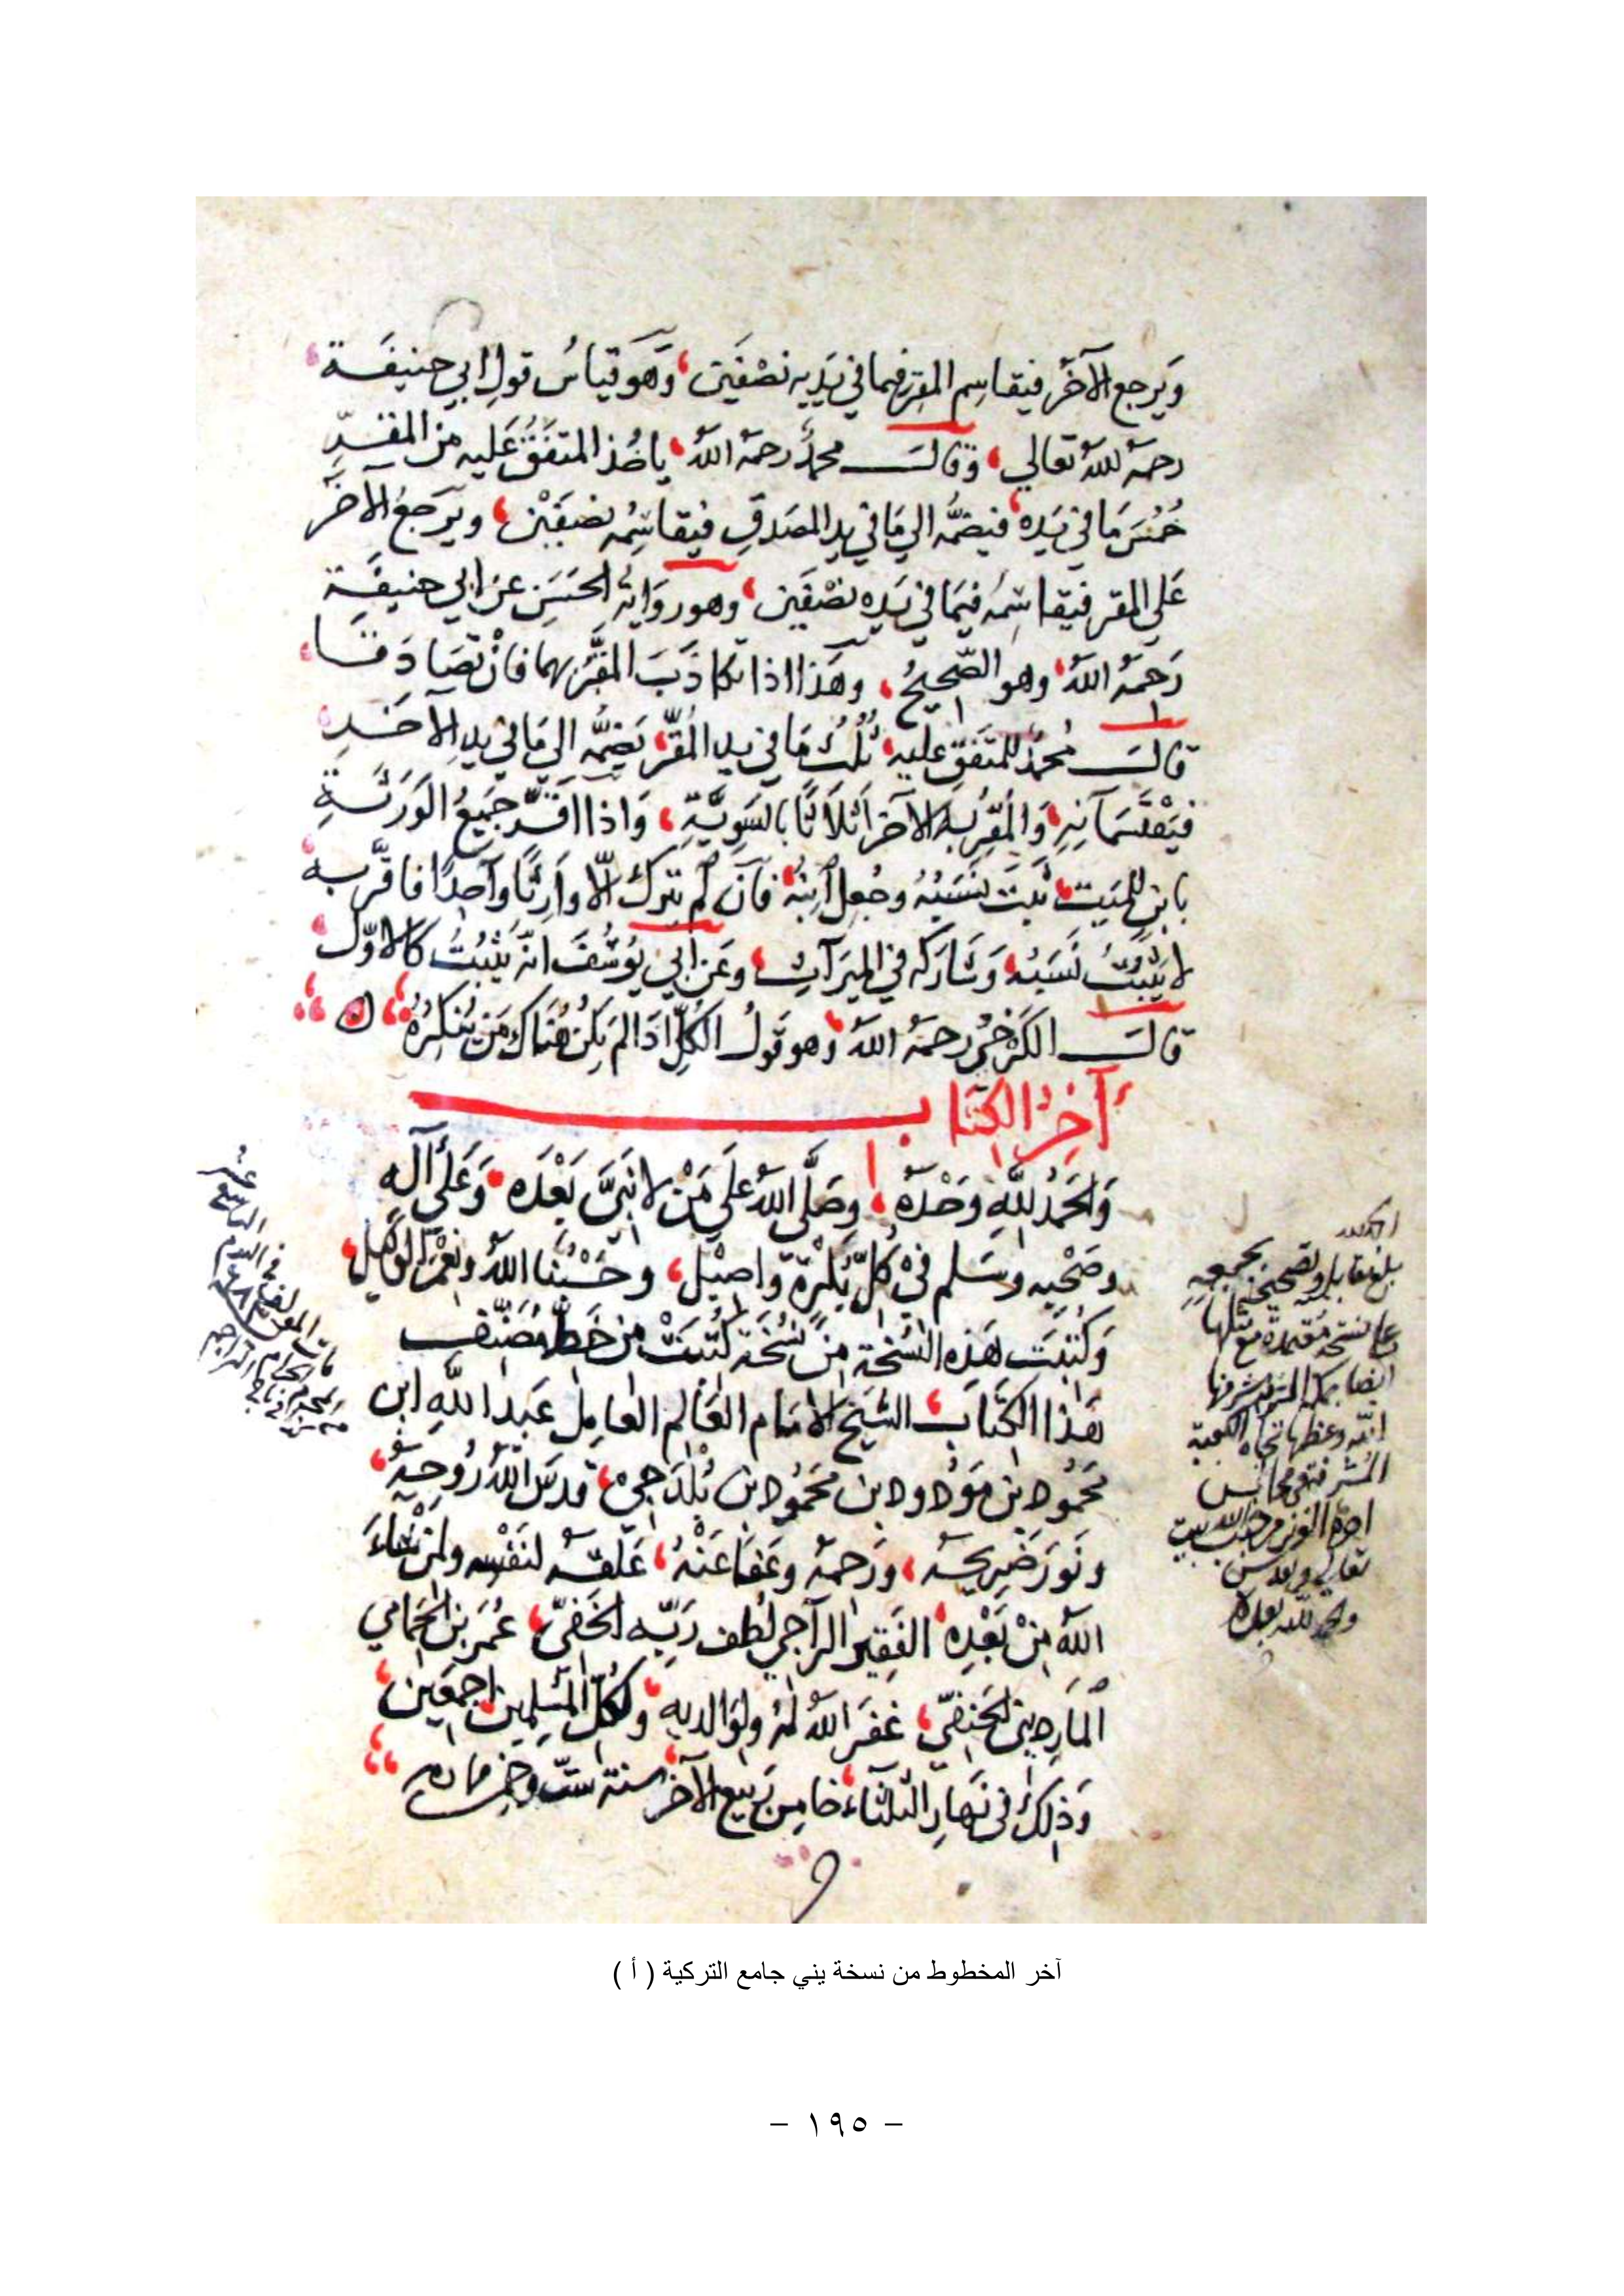 ويرجع الآخر فيقاسم المقر فيما في يديه نصفين، وهو قياس قول ابي حنيفة
رحمه الله تعالي، وقال محمد رحمه الله، ياخذ المتفق عليه من المقر
خمس ما في يده، فيضمه الي ما في يد المصدق فيقاسمه نصفين، ويرجع الآخر
علي المقر فيقاسمه فيما في يده نصفين، وهو رواية الحسن عن ابي حنيفة
رحمه الله، وهو الصحيح، وهذا اذا تكاذب المقر بهما فان تصادقا،
قال محمد للمتفق عليه، ثلث ما في يد المقر، يضمه الي ما في يد الآخر
فيقتسمانه، والمقر به الآخر اثلاثا بالسوية، واذا اقر جميع الورثة
بابن للميت، ثبت نسبه وجعل ابنه، فان لم يترك الا وارثا واحدا فاقر به،
لا يثبت نسبه، وشاركه في الميراث، وعن ابي يوسف انه يثبت كالاول،
قال الكرخي رحمه الله، وهو قول الكل اذا لم يكن هناك من ينكره،
آخر الكتاب
والحمد لله وحده، وصلى الله علي من لا نبي بعده، وعلى آله
وصحبه وسلم في كل بكرة واصيل، وحسبنا الله ونعم الوكيل،
وكتبت هذه النسخة من نسخة كتبت من خط مصنف
هذا الكتاب، الشيخ الامام العالم العامل عبد الله ابن
محمود بن مودود بن محمود بن بلدجي، قدس الله روحه،
ونور ضريحه، ورحمه وعفا عنه، علقه لنفسه ولمن شاء
الله من بعده، الفقير الراجي لطف ربه الخفي، عمر بن الحمامي
المارديني الحنفي، غفر الله له ولوالديه، ولكل المسلمين اجمعين،
وذلك في نهار الثلثاء، خامس ربيع الآخر، سنة ست وخمس مايه
بلغ مقابلة وتصحيحا بجميعه
على نسخة معتمدة مع مثلها
ايضا بمكة المشرفة شرفها
الله وعظمها تجاه الكعبة
المشرفة
آخر المخطوط من نسخة يني جامع التركية ( أ )
- ١٩٥ -